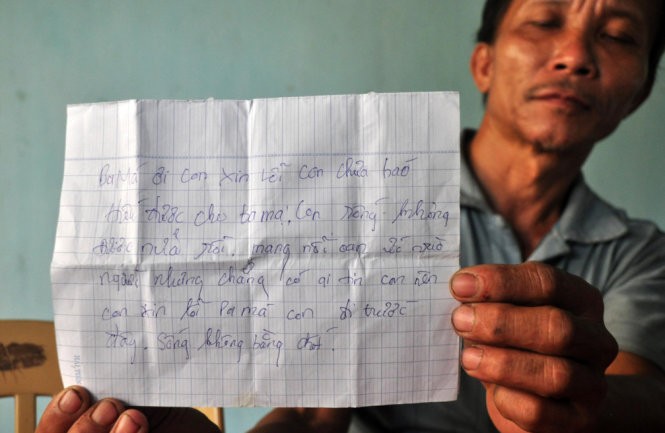 Ba Má ơi con xin lỗi con chưa báo
Hiếu được cho ba má. Con sống không
được nữa rồi. mang nỗi oan ức vào
người nhưng chẳng có ai tin con nên
con xin lỗi Pa má con đi trước
đây. Sống không bằng chết.